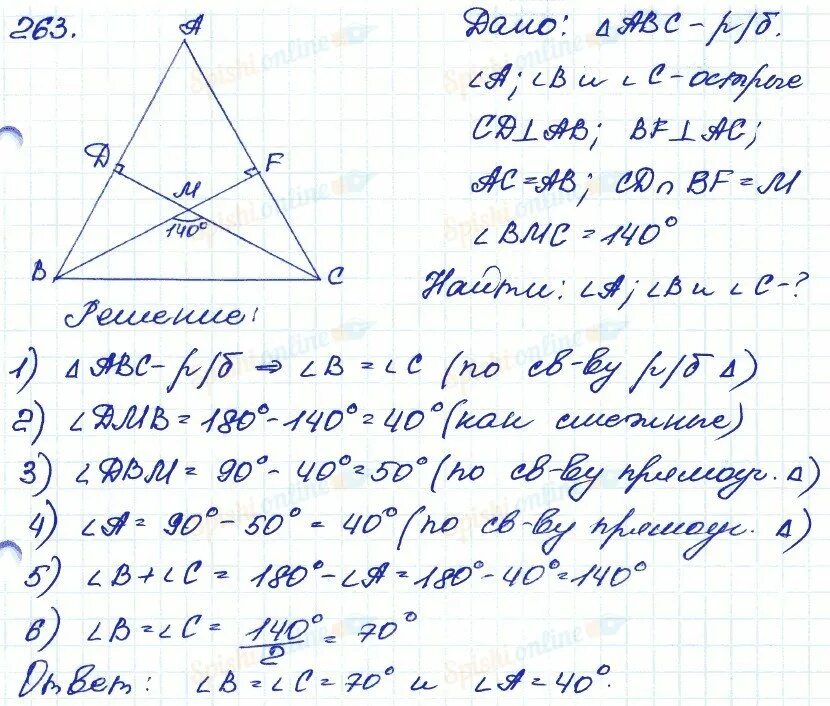 263.
Дано: △ABC – р/б.
∠A; ∠B и ∠C – острые
CD⊥AB; BF⊥AC;
AC=AB; CD∩BF=M
∠BMC=140°
Найти: ∠A; ∠B и ∠C-?
A
D
F
M
140°
B
C
Решение:
1) △ABC – р/б ⇒ ∠B=∠C (по св-ву р/б △)
2) ∠DMB=180°-140°=40° (как смежные)
3) ∠DBM=90°-40°=50° (по св-ву прямоуг. △)
4) ∠A=90°-50°=40° (по св-ву прямоуг. △)
5) ∠B+∠C=180°-∠A=180°-40°=140°
6) ∠B=∠C=140°/2=70°
Ответ: ∠B=∠C=70° и ∠A=40°.
Spishi online